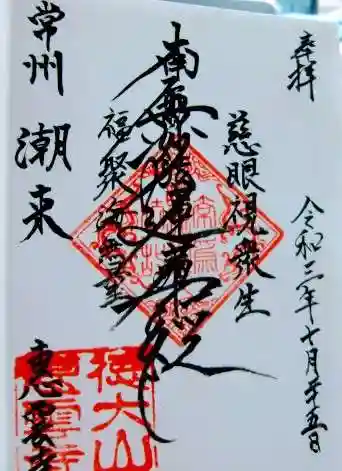 奉拝
令和三年十月廿五日
慈眼視衆生
南無妙法蓮華経
福聚海無量
常州
潮来
惠雲寺
徳大山